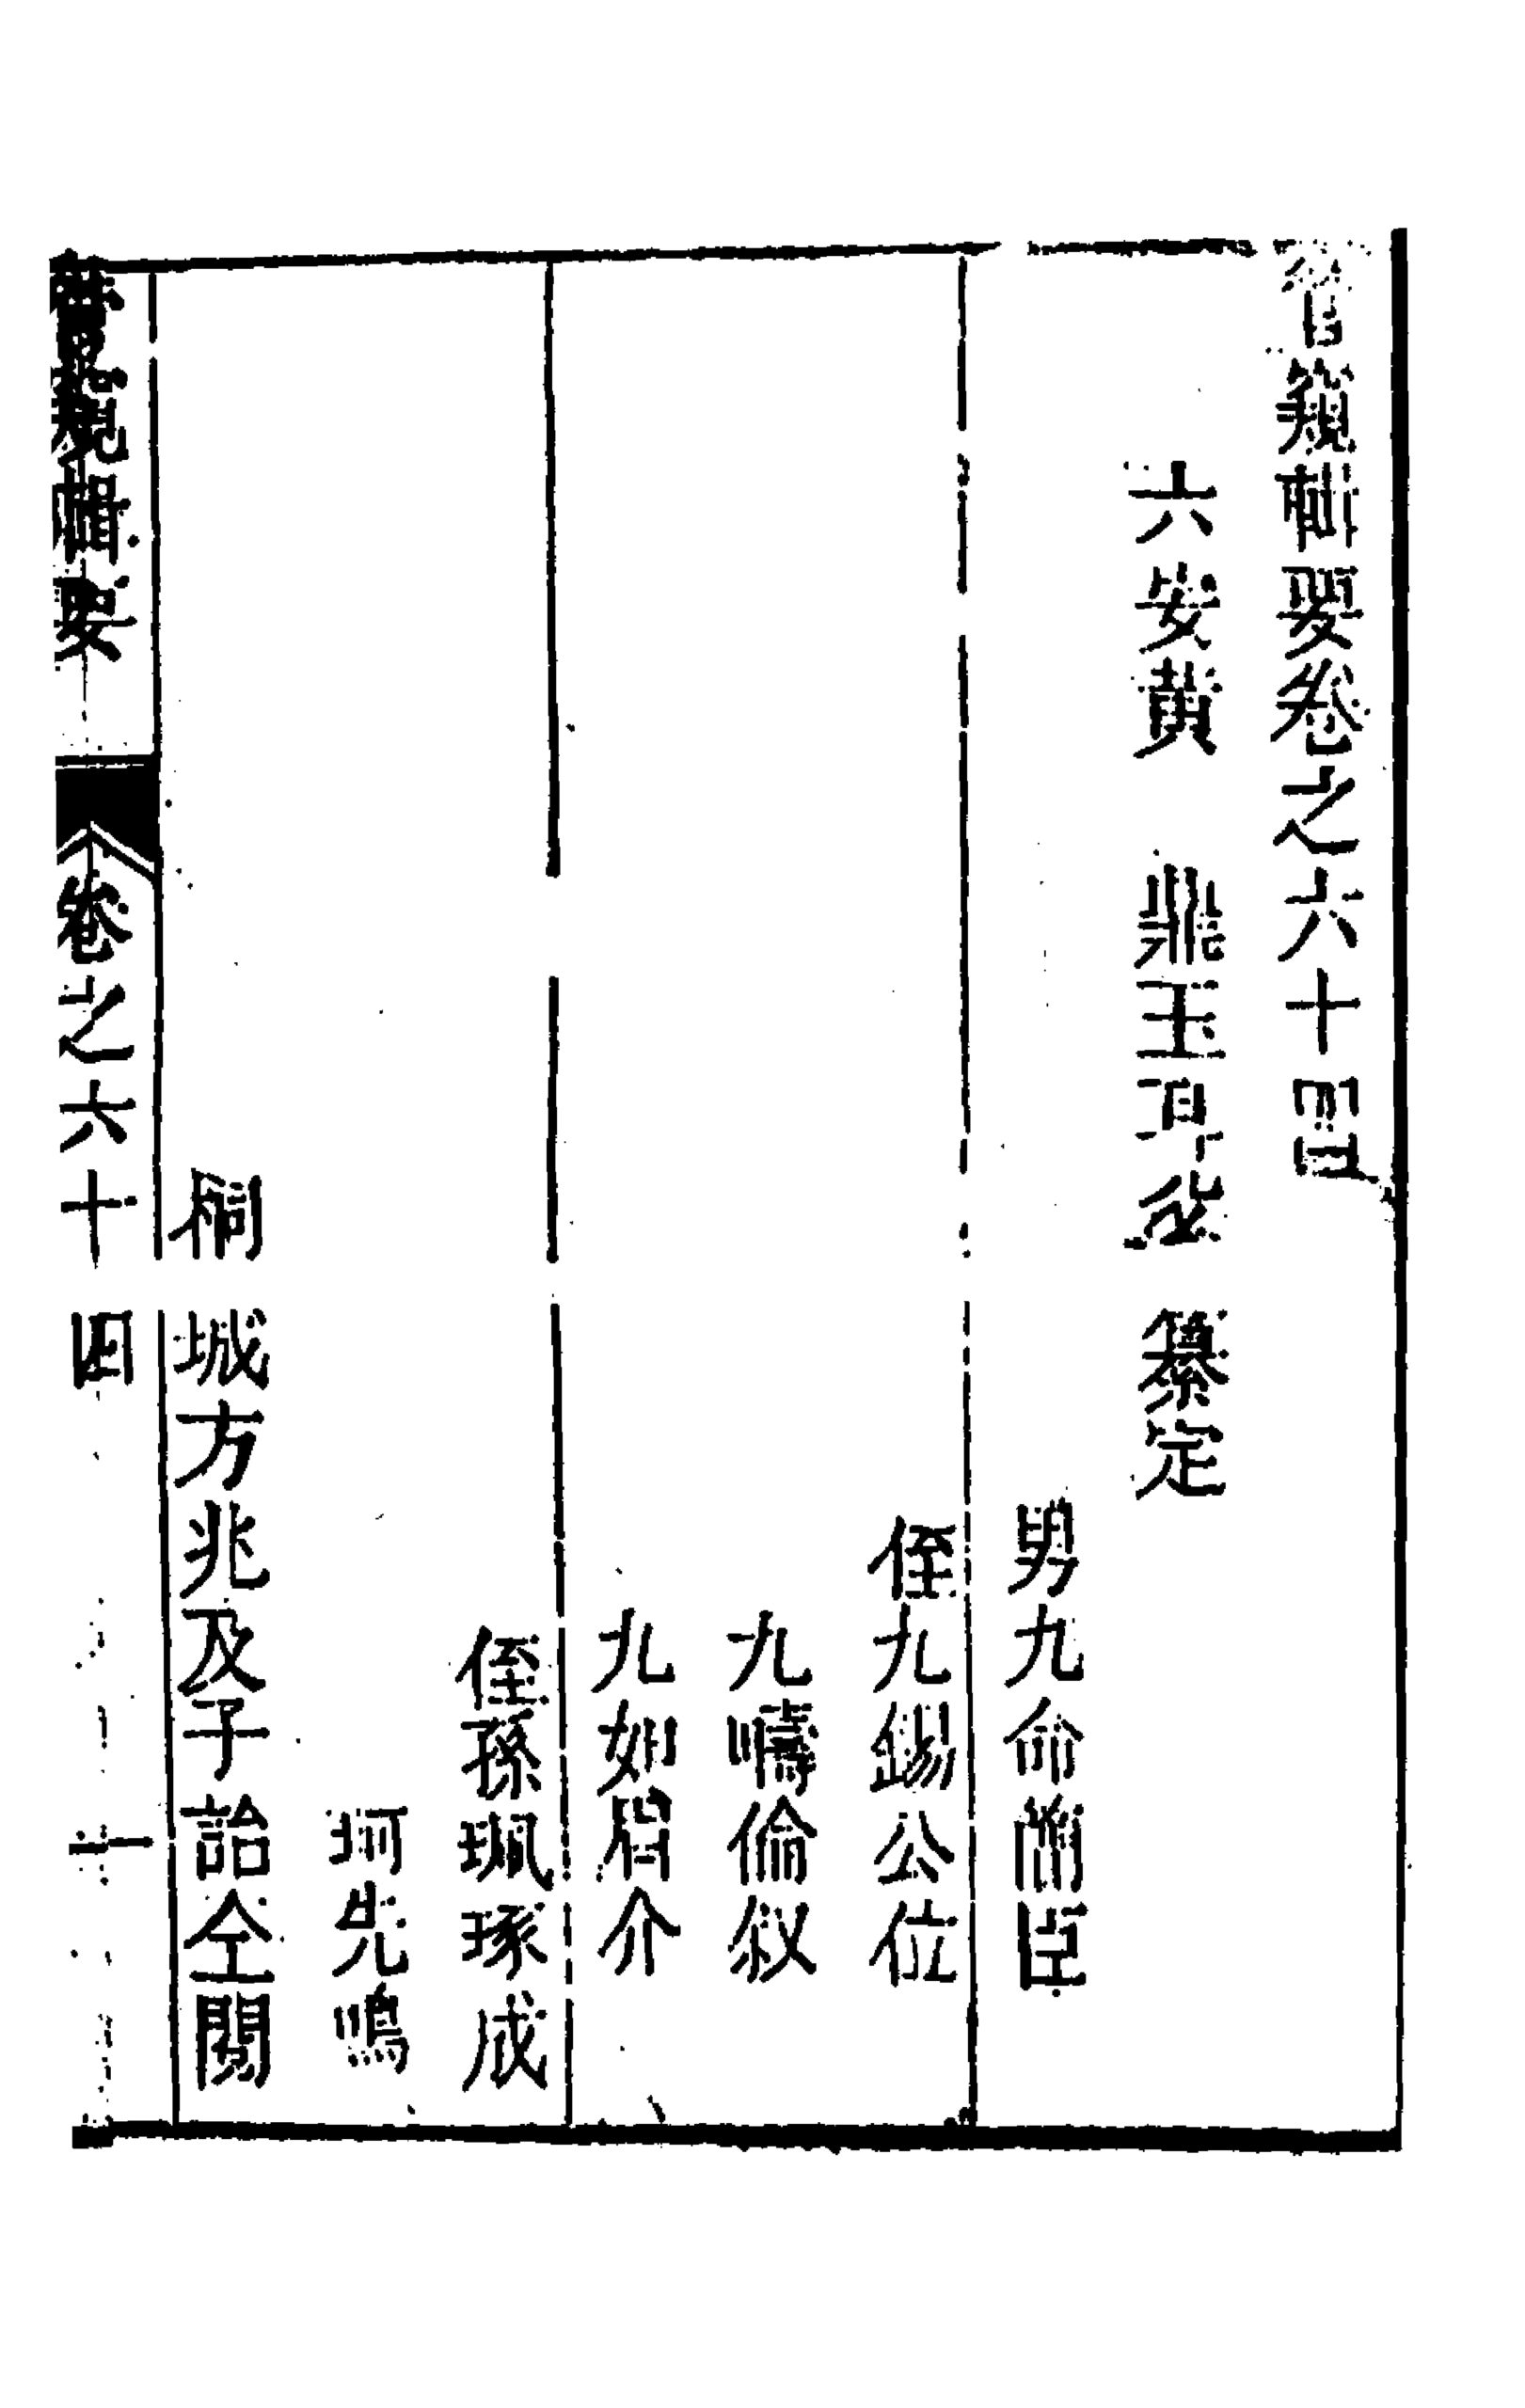 管窺輯要卷之六十四
六安黃　鼎玉耳父　纂定
男九命簡臣
侄九錫公位
九疇倫叙
九如眉介
侄孫珮琢成
珂先鳴
桐城方兆及子詒仝閱
管窺輯要　卷之六十四　一